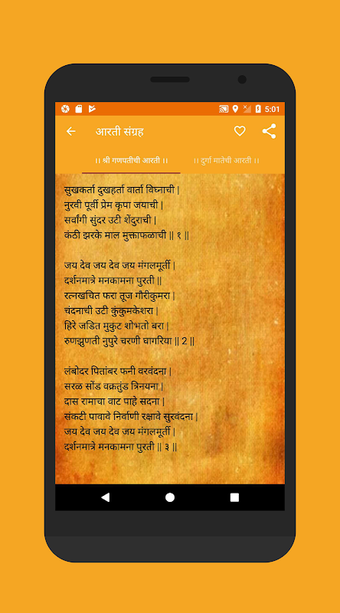 5:01
आरती संग्रह
।। श्री गणपतीची आरती ।।
।। दुर्गा मातेची आरती ।।
सुखकर्ता दुखहर्ता वार्ता विघ्नाची |
नुरवी पूर्वी प्रेम कृपा जयाची |
सर्वांगी सुंदर उटी शेंदुराची |
कंठी झरके माल मुक्ताफळाची || १ ||
जय देव जय देव जय मंगलमूर्ती |
दर्शनमात्रे मनकामना पुरती ||
रत्नखचित फरा तूज गौरीकुमरा |
चंदनाची उटी कुंकुमकेशरा |
हिरे जडित मुकुट शोभतो बरा |
रुणझुणती नुपुरे चरणी घागरिया || 2 ||
लंबोदर पितांबर फनी वरवंदना |
सरळ सोंड वक्रतुंड त्रिनयना |
दास रामाचा वाट पाहे सदना |
संकटी पावावे निर्वाणी रक्षावे सुरवंदना |
जय देव जय देव जय मंगलमूर्ती |
दर्शनमात्रे मनकामना पुरती || ३ ||